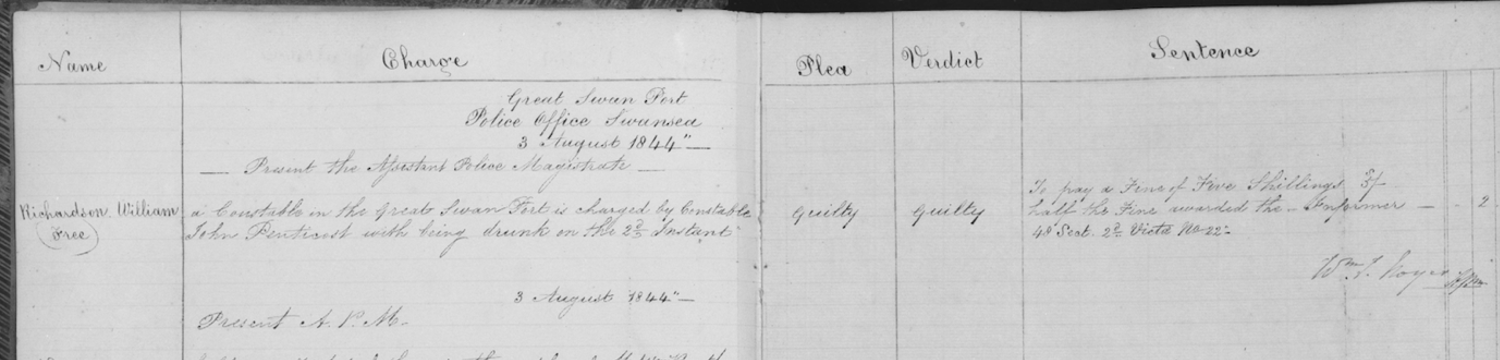 Name
Charge
Plea
Verdict
Sentence
Great Swan Port
Police Office Swansea
3 August 1844"—
— Present the Assistant Police Magistrate —
Richardson William
Free
a Constable in the Great Swan Port is charged by Constable
John Penticost with being drunk on the 2d Instant
Guilty
Guilty
To pay a Fine of Five Shillings 5/
half the Fine awarded the Informer — - 2
48 Sect. 2d Victa No 22-
Wm
3 August 1844"—
Present A. P. M.